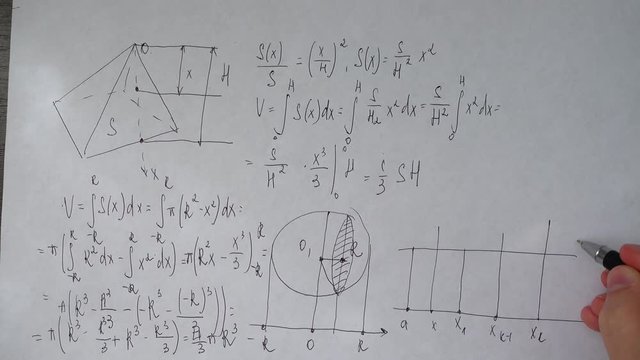 O
x
H
S
x
S(x)/S = (x/H)^2, S(x) = S/H^2 x^2
V = ∫_0^H S(x)dx = ∫_0^H S/H2 x^2dx = S/H^2 ∫_0^H x^2dx =
= S/H^2 · x^3/3 |_0^H = 1/3 SH
V = ∫_{-R}^R S(x)dx = ∫_{-R}^R π(R^2-x^2)dx =
= π(∫_{-R}^R R^2dx - ∫_{-R}^R x^2dx) = π(R^2x - x^3/3)_{-R}^R =
= π(R^3 - R^2/3 - (-R^3 - (-R)^3/3)) =
= π(R^3 - R^3/3 + R^3 - R^3/3) = 4/3 π R^3
O1 R
-R O R
a x x1 xk-1 x2